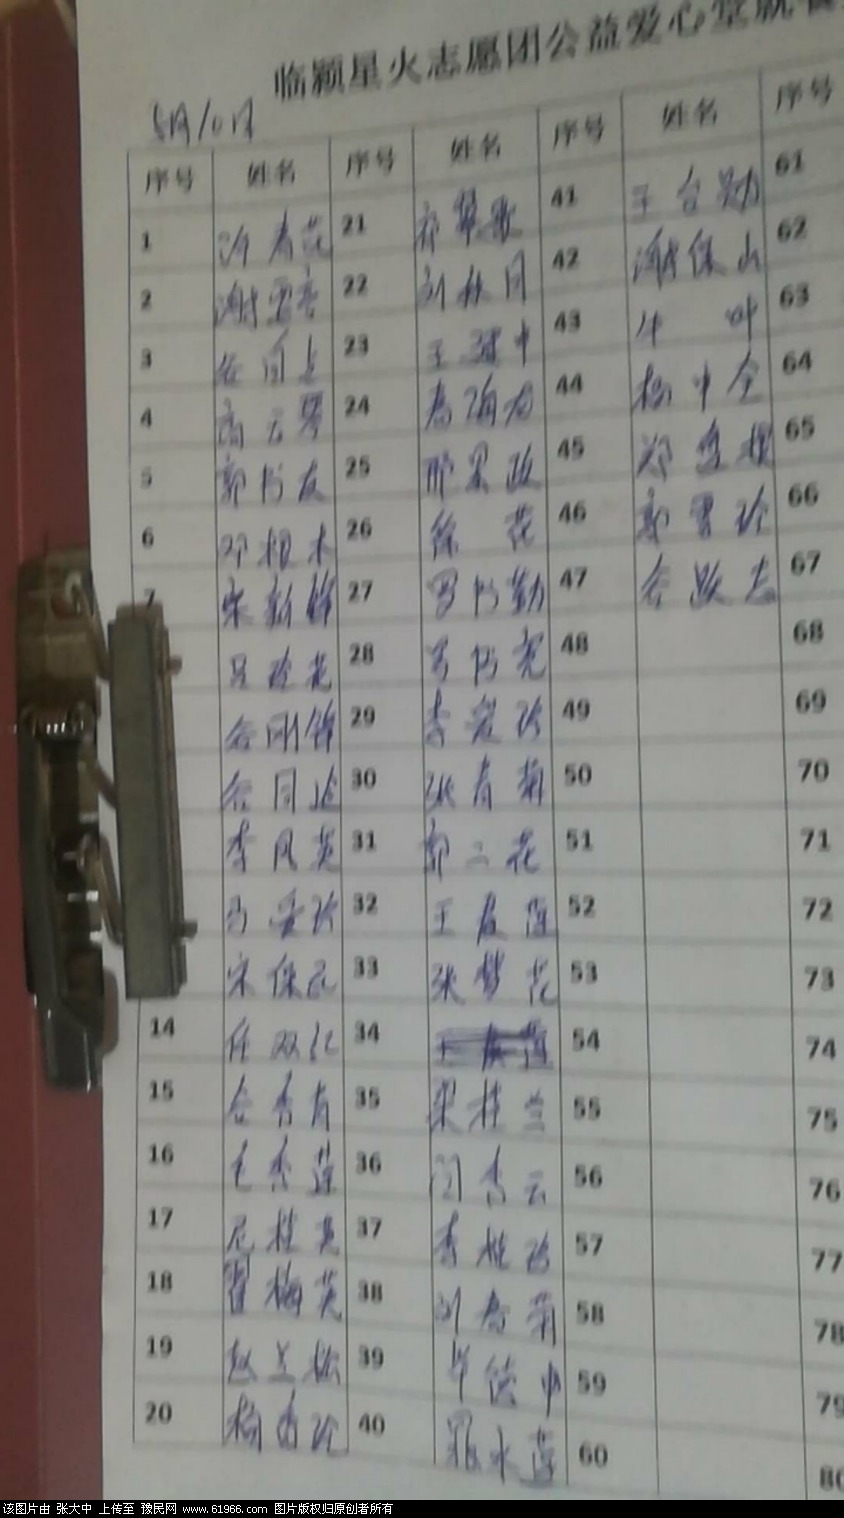 临颍星火志愿团公益爱心堂就餐
5月10日
序号 姓名 序号 姓名 序号 姓名 序号
1 许春花 21 41 王合勋 61
2 谢雪亭 22 刘秋同 42 谢保山 62
3 谷同点 23 王 中 43 牛 叶 63
4 高云琴 24 44 杨中全 64
5 郭书友 25 邢果政 45 郑 65
6 邓根木 26 徐 花 46 郭雪玲 66
7 宋新锋 27 罗书勤 47 谷跃志 67
吕玲花 28 罗书宪 48 68
谷刚锋 29 李爱玲 49 69
谷同 30 张春菊 50 70
李凤英 31 郭二花 51 71
马爱玲 32 王 莲 52 72
宋保 33 张梦花 53 73
14 任双红 34 54 74
15 谷秀 35 梁桂兰 55 75
16 毛秀莲 36 闫秀云 56 76
17 尼桂英 37 李桂玲 57 77
18 翟梅英 38 刘春菊 58 78
19 赵兰松 39 毕德中 59 79
20 杨 玲 40 罗水莲 60 80
该图片由 张大中 上传至 豫民网 www.61966.com 图片版权归原创者所有